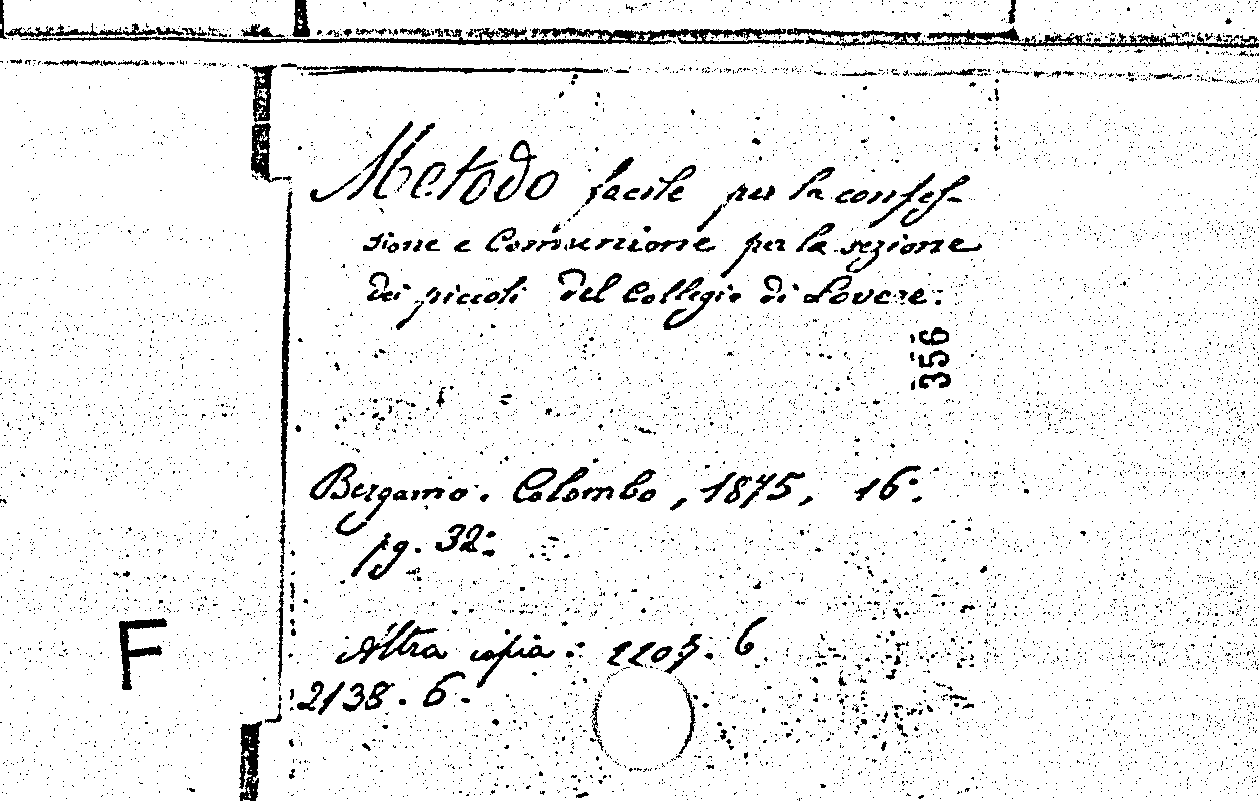 Metodo facile per la confes-
sione e Comunione per la sezione
dei piccoli del Collegio di Lovere.
356
Bergamo. Colombo, 1875, 16°.
pg. 32.
F
Altra copia: 2207. 6
2138. 6.